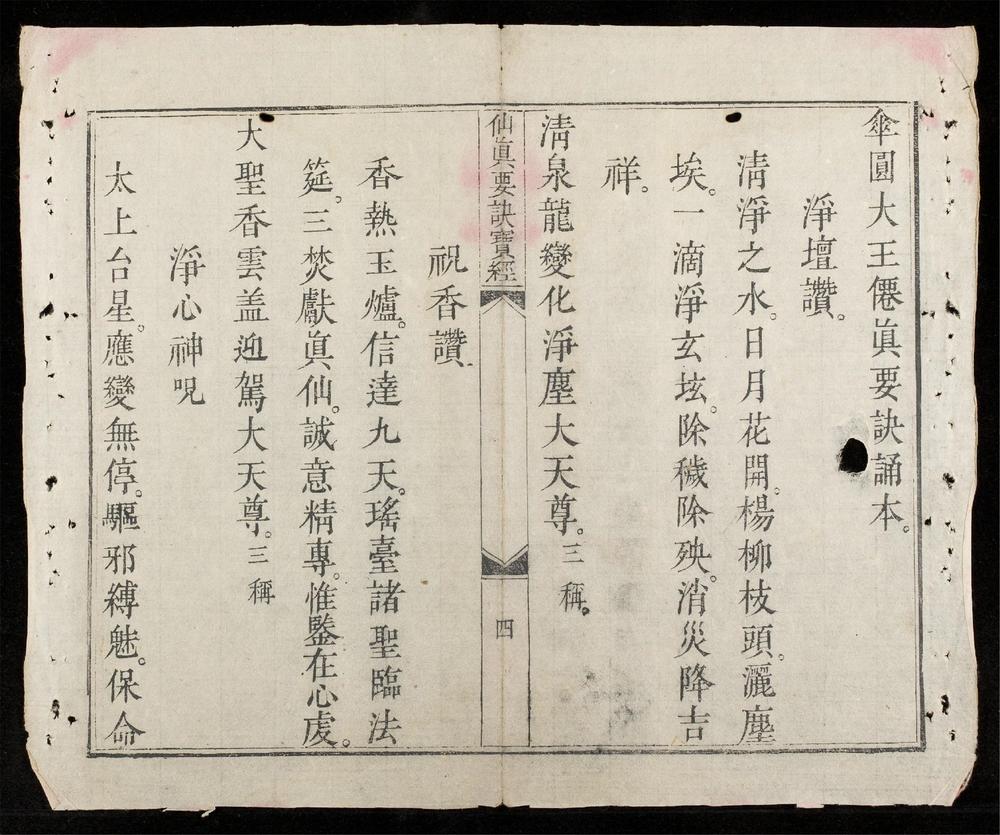 傘圓大王僊眞要訣誦本。
淨壇讚。
淸淨之水。日月花開。楊柳枝頭。灑塵
埃。一滴淨玄垓。除穢除殃。消災降吉
祥。
淸泉龍變化淨塵大天尊。三稱。
仙眞要訣寶經
四
祝香讚
香熱玉爐。信達九天。瑤臺諸聖臨法
筵。三焚獻眞仙。誠意精專。惟鑒在心虔。
大聖香雲盖迎駕大天尊。三稱
淨心神呪
太上台星。應變無停。驅邪縛魅。保命